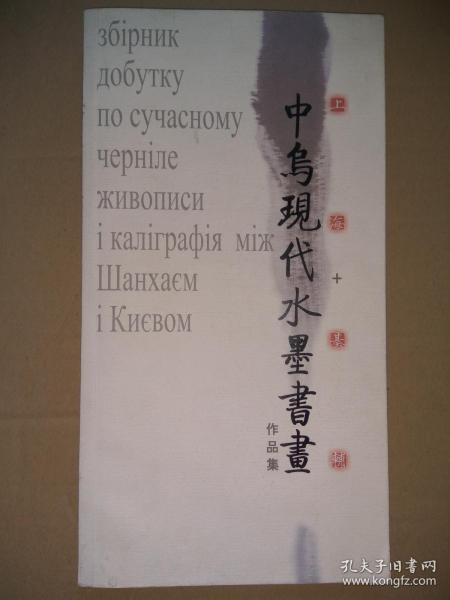 збірник
добутку
по сучасному
черніле
живописи
і каліграфія між
Шанхаєм
і Києвом
中烏現代水墨書畫
作品集
上海+基輔
孔夫子旧书网
www.kongfz.com